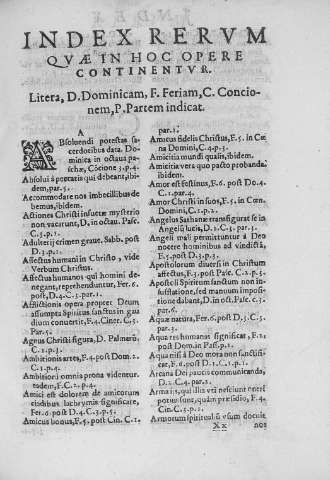 INDEX RERVM
QVÆ IN HOC OPERE
CONTINENTVR.
Litera, D. Dominicam, F. Feriam, C. Concio-
nem, P. Partem indicat.
A
ABsoluendi potestas sa-
cerdotibus data. Do-
minica in octaua pa-
schæ, Cōcione 3. p. 4.
Absolui à peccatis qui debeant, ibi-
dem, par. 5.
Accommodare nos imbecillibus de-
bemus, ibidem.
Actiones Christi insuetæ mysterio
non vacarunt, D. in octau. Pasc.
C. 5. p. 1.
Adulterij crimen graue, Sabb. post
D. 3. p. 1.
Affectus humani in Christo, vide
Verbum Christus.
Affectus humanos qui homini de-
negant, reprehenduntur, Fer. 6.
post, D. 4. C. 3. par. 1.
Afflictionis opera propter Deum
assumpta Spiritus sanctus in gau
dium conuertit, F. 4. Ciner. C. 5.
Par. 5.
Agnus Christi figura, D. Palmarū.
C. 2. p. 3.
Ambitionis artes, F. 4. post Dom. 2.
C. 1. p. 4.
Ambitiosi omnia prona videntur.
eadem, F. C. 2. p. 4.
Amici est dolorem de amicorum
cladibus lachrymis significare,
Fer. 6. post D. 4. C. 3. p. 5.
Amicus bonus, F. 5. post Cin. C. 2.
par. 1.
Amicus fidelis Christus, F. 5. in Cœ
na Domini, C. 4. p. 3.
Amicitia mundi qualis, ibidem.
Amicitia vera quo pacto probanda,
ibidem.
Amor est festinus, F. 6. post D. 4.
C. 1. par. 4.
Amor Christi in suos, F. 5. in Cœn.
Domini, C. 1. p. 2.
Angelus Sathanæ transfigurat se in
Angelū lucis, D. 1. C. 3. par. 1.
Angeli mali permittuntur à Deo
nocere hominibus ad vindictā,
F. 5. post D. 3. p. 3.
Apostolorum diuersi in Christum
affectus, F. 3. post Pasc. C. 2. p. 5.
Apostoli Spiritum sanctum non in-
sufflatione, sed manuum imposi-
tione dabant, D. in oct. Pasc. C. 3.
par. 6.
Aquæ natura, Fer. 6. post D. 3. C. 3.
par. 3.
Aqua res humanis significat, F. 2.
post Dom. in Pasc. p. 1.
Aqua nisi à Deo mota non sanctifi-
cat, F. 6. post D. 1. C. 1. p. 1.
Arcana Dei paucis communicanda,
D. 2. C. 4. par. 2.
Arma ijs, qui illis vti nesciunt eneri
potius sunt, quàm præsidio, F. 4.
Cin. C. 3. p. 2.
Armorum spiritual. ū vsum docuit
Xx nos